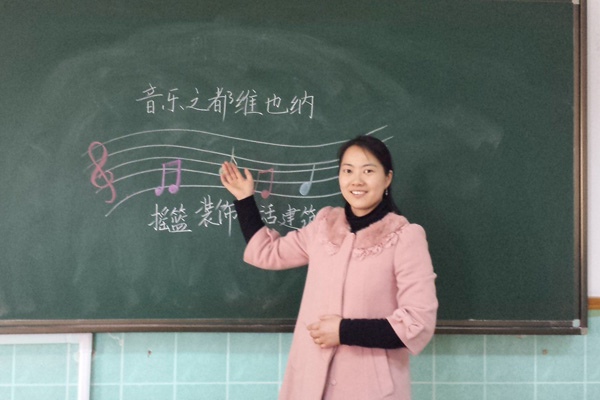 音乐之都维也纳
摇篮 装饰 活建筑